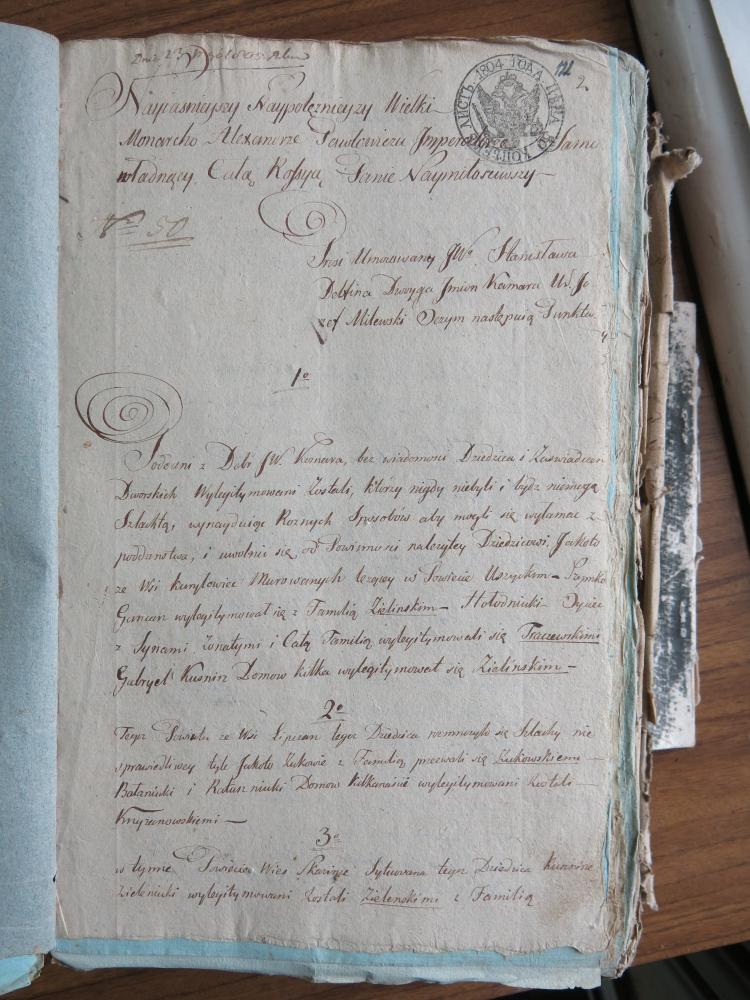 Dnia 23
121
2.
ЛИСТЪ 1804 ГОДА ЦѢНА КОПѢЕКЪ
Nayiasnieyszy Naypotężnieyszy Wielki
Monarcho Alexandrze Pawłowiczu Imperatorze Samo
władnący Całą Rossyą Panie Naymiłosciwszy
Nr 50
Prosi Umocowany JWo Stanisława
Delfina Dwoyga Imion Komara Ur. Jo
zef Milewski Oczym następuią Punkta
1o
Poddani z Dobr JW. Komara, bez wiadomosci Dziedzica i Zaswiadczeń
Dworskich Wylegitymowani Zostali, ktorzy nigdy niebyli i bydz niemogą
Szlachtą, wynayduiąc Roznych Sposobow aby mogli się wyłamac z
poddanstwa, i uwolnic się od Powinnosci nalezytey Dziedzicowi, Jakoto
ze Wsi Kuryłowiec Murowanych leżącey w Powiecie Uszyckim – Szymko
Gancan wylegitymował się z Familią Zielinskim – Hołodniuki Oyciec
z Synami Zonatymi i Całą Familią wylegitymowali się Traczewskimi
Gabryel Kusnirz Domow kilka wylegitymował się Zielinskim –
2o
Tegoż Powiatu ze Wsi Lipczan tegoż Dziedzica rozmnożyło się Szlachty nie
sprawiedliwey tyle Jakoto Żukowie z Familią przezwali się Żukowskiemi
Bałaniuki i Ratuszniuki Domow kilkanaście wylegitymowani Zostali
Kruzanowskiemi –
3o
w tymże Powiecie Wies Skazińce Sytuowana tegoż Dziedzica
Zieleniuki wylegitymowani Zostali Zielenskimi z Familią